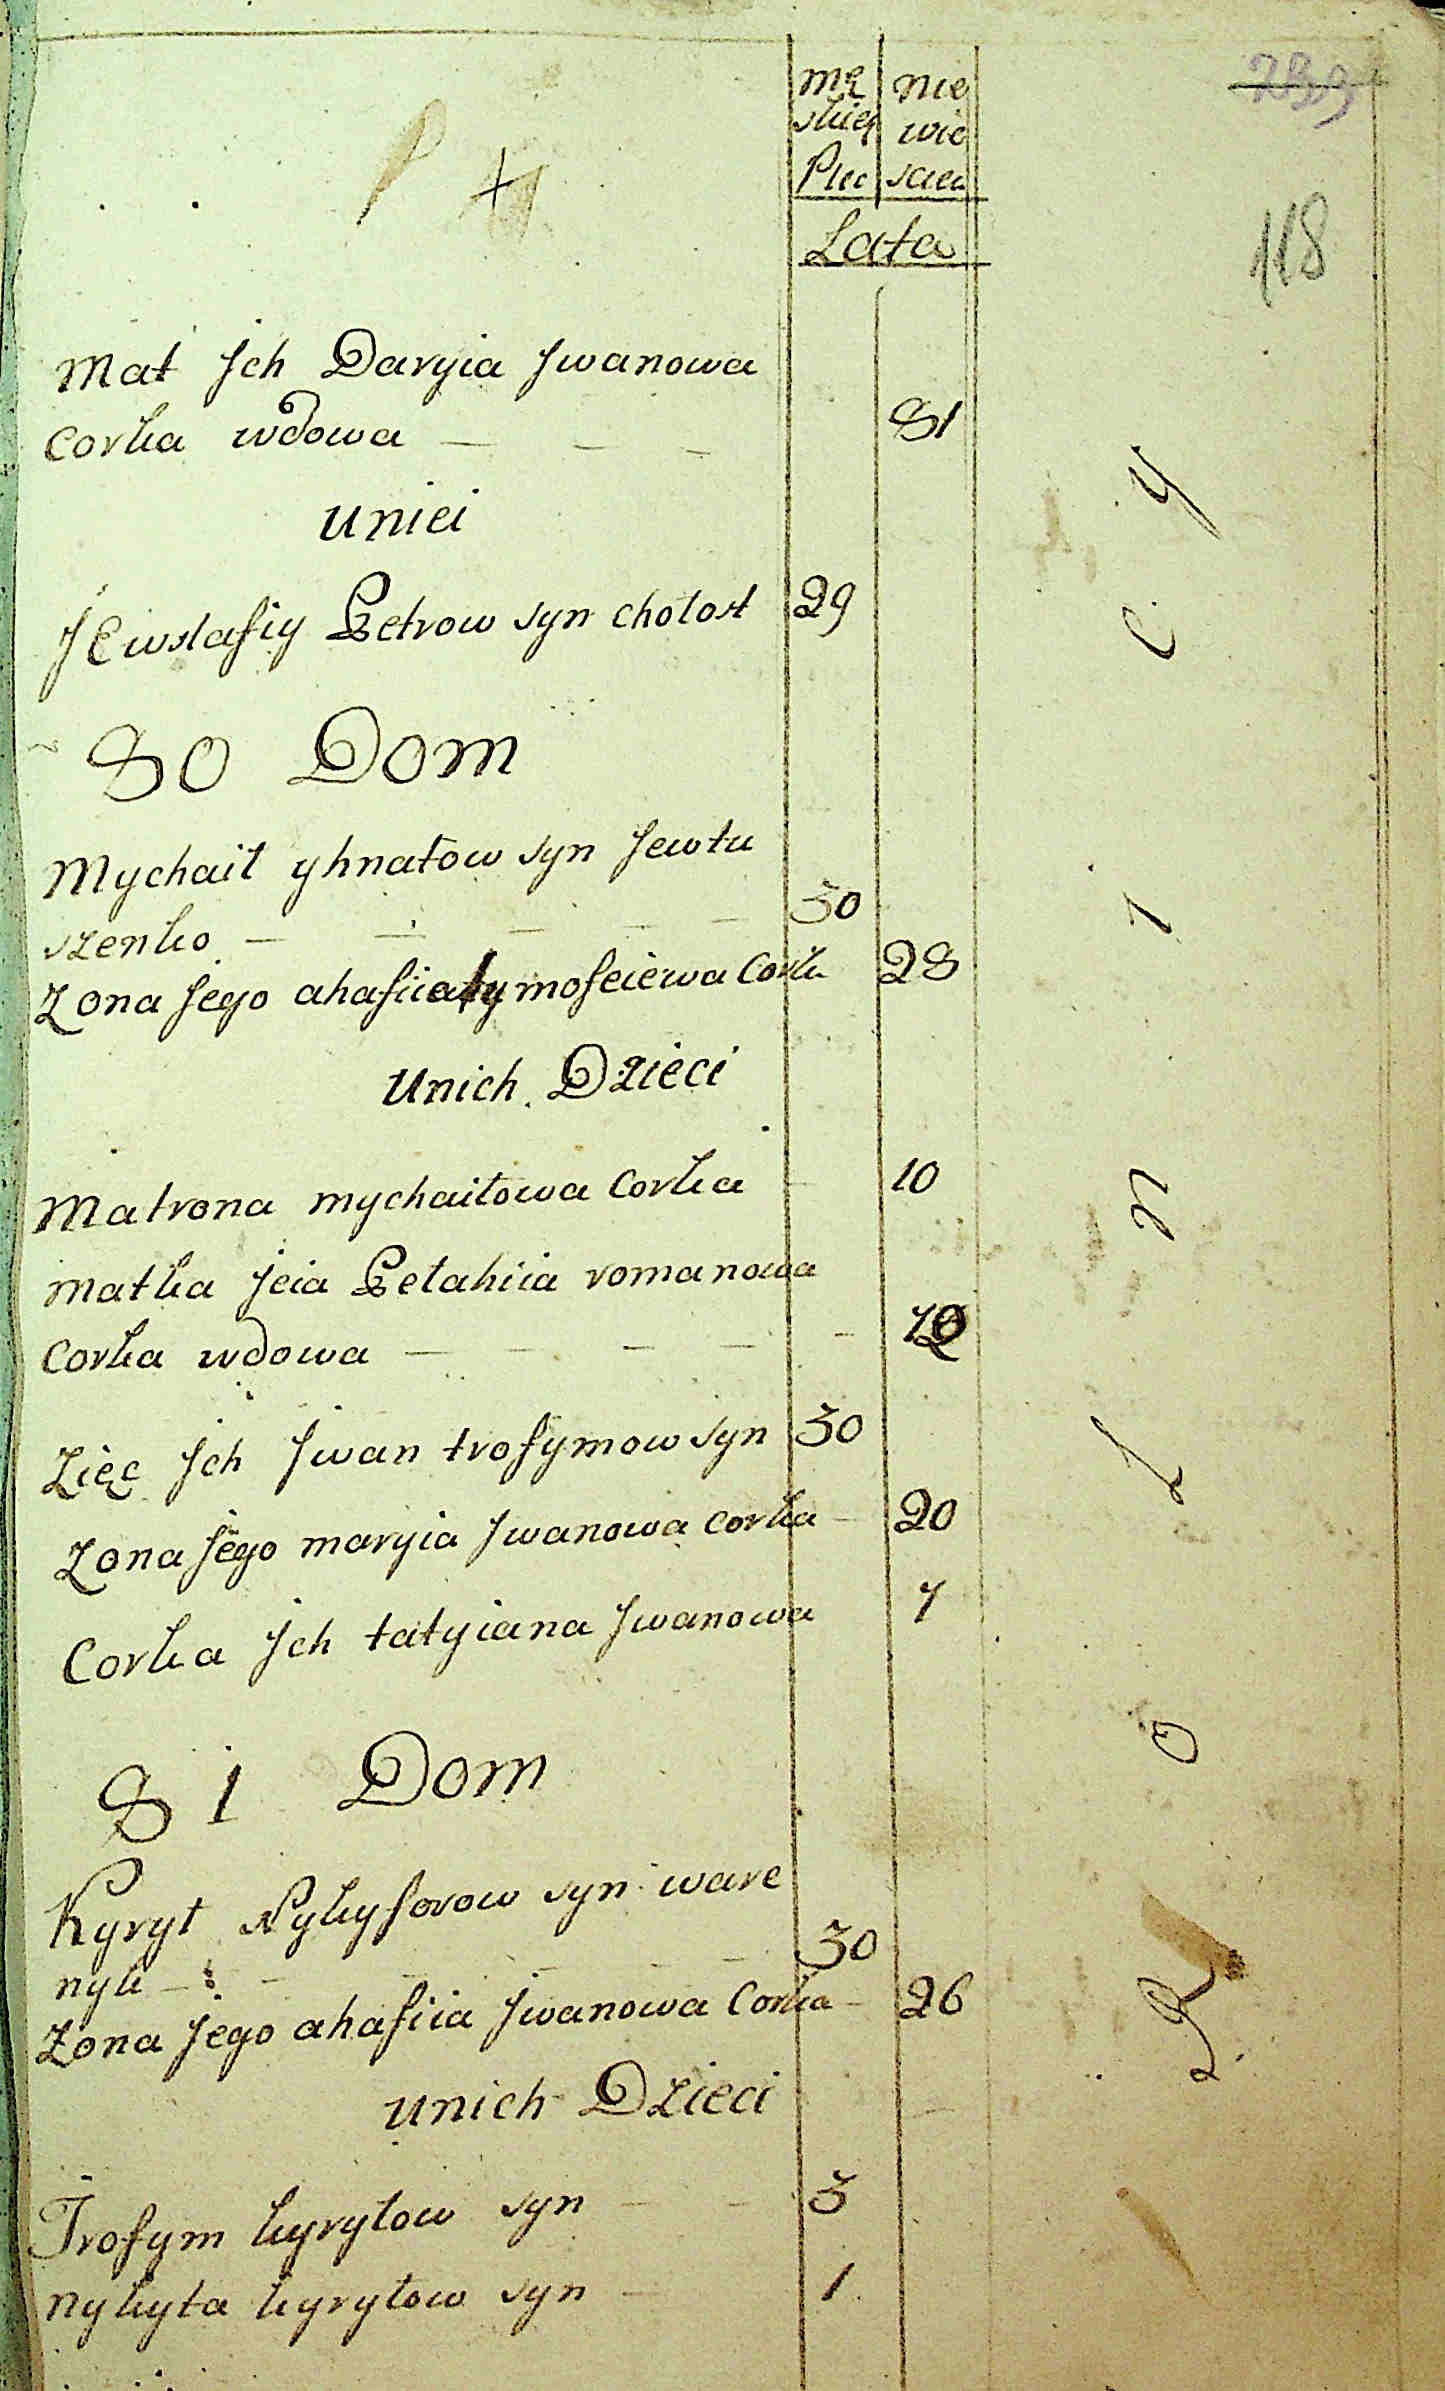 233
118
mę nie
skiey wie
Płec sciey
Lata
Mat Jch Daryia Jwanowa
Corka wdowa — — — 81
uniei
JEwstafiy Petrow syn chołost 29
80 Dom
Mychaił yhnatow syn Jewtu
szenko — — — — — 30
Zona Jego ahafiia tymofeiewa Cork 28
unich Dzieci
Matrona mychaiłowa Corka 10
matka Jeia Pelahiia romanowa
Corka wdowa — — — — —
Zięc Jch Jwan trofymow syn 30
Zona Jego maryia Jwanowa corka — 20
Corka Jch tatyiana Jwanowa 7
81 Dom
Kyrył Nykyforow syn ware
nyk — — — — — 30
Zona Jego ahafiia Jwanowa Corka — 26
unich Dzieci
Trofym kyryłow syn — — 3
nykyta kyryłow syn — 1
R o l n i c y